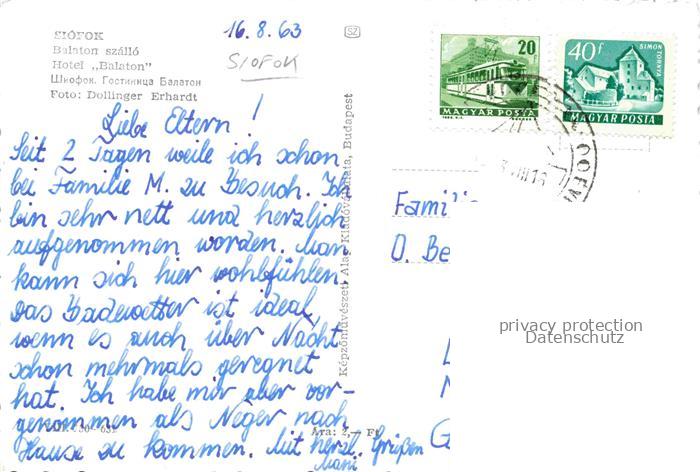 16.8.63
SIOFOK
SIÓFOK
Balaton szálló
Hotel „Balaton"
Шиофок. Гостиница Балатон
Foto: Dollinger Erhardt
Liebe Eltern!
Seit 2 Tagen weile ich schon
bei Familie M. zu Besuch. Ich
bin sehr nett und herzlich
aufgenommen worden. Man
kann sich hier wohlfühlen.
Das Badewetter ist ideal,
wenn es auch über Nacht
schon mehrmals geregnet
hat. Ich habe mir aber vor-
genommen als Neger nach
Hause zu kommen. Mit herzl. Grüßen
Ára: 2,— Ft
Képzőművészeti Alap Kiadóvállalata, Budapest
SZ
20
MAGYAR POSTA
40f
SIMON
TORNYA
MAGYAR POSTA
Famili
O. Be
privacy protection
Datenschutz